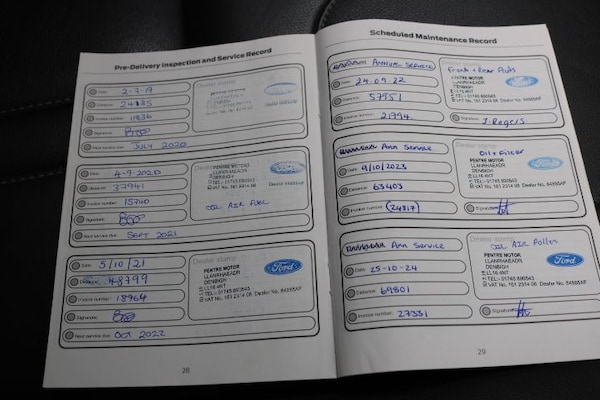 Pre-Delivery Inspection and Service Record
Date: 2-7-19
Distance: 24885
Invoice number: 11836
Signature:
Next service due: JULY 2020
Dealer stamp
Date: 4-9-2020
Distance: 37941
Invoice number: 15740
Signature:
Next service due: SEPT 2021
PENTRE MOTOR
LLANRHAEADR
DENBIGH
LL16 4NT
TEL:- 01745 890543
VAT No. 161 2314 08 Dealer No.
Ford
OIL AIR FUEL
Date: 5/10/21
Distance: 48799
Invoice number: 18964
Signature:
Next service due: OCT 2022
Dealer stamp
PENTRE MOTOR
LLANRHAEADR
DENBIGH
LL16 4NT
TEL:- 01745 890543
VAT No. 161 2314 08 Dealer No. 84585AF
Ford
28
Scheduled Maintenance Record
ANNUAL SERVICE
Date: 24.09.22
Distance: 57751
Invoice number: 21794
Front + Rear Pads
PENTRE MOTOR
LLANRHAEADR
DENBIGH
LL16 4NT
TEL:- 01745 890543
VAT No. 161 2314 08 Dealer No. 84585AF
Ford
Signature: J. Rogers
Ann Service
Date: 9/10/2023
Distance: 63403
Invoice number: 24817
Oil + Filter
PENTRE MOTOR
LLANRHAEADR
DENBIGH
LL16 4NT
TEL:- 01745 890543
VAT No. 161 2314 08 Dealer No. 84585AF
Signature:
Ann Service
Date: 25-10-24
Distance: 69801
Invoice number: 27331
Dealer stamp
OIL AIR Pollen
PENTRE MOTOR
LLANRHAEADR
DENBIGH
LL16 4NT
TEL:- 01745 890543
VAT No. 161 2314 08 Dealer No. 84585AF
Ford
Signature:
29